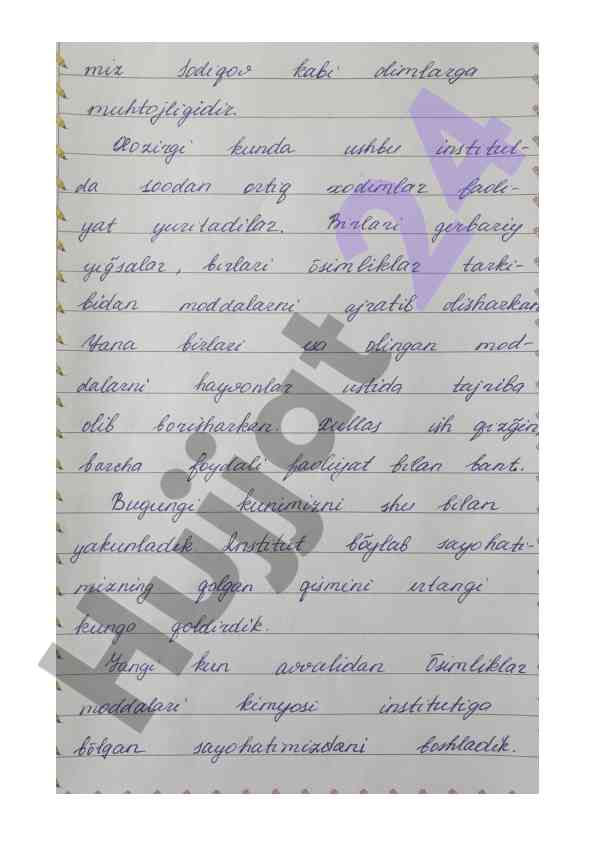 miz Sodiqov kabi olimlarga
muhtojligidir.
Xozirgi kunda ushbu institut-
da 500dan ortiq xodimlar faoli-
yat yuritadilar. Birlari gerbariy
yiğsalar, birlari õsimliklar tarki-
bidan moddalarni ajratib olisharkan
Yana birlari va olingan mod-
dalarni hayvonlar ustida tajriba
olib borisharkan. Xullas ish qizğin,
barcha foydali faoliyat bilan bant.
Bugungi kunimizni shu bilan
yakunladik Institut bõylab sayohati-
mizning qolgan qismini ertangi
kunga qoldirdik.
Yangi kun avvalidan Õsimliklar
moddalari kimyosi institutiga
bõlgan sayohatimizdani boshladik.
Hujjat 24